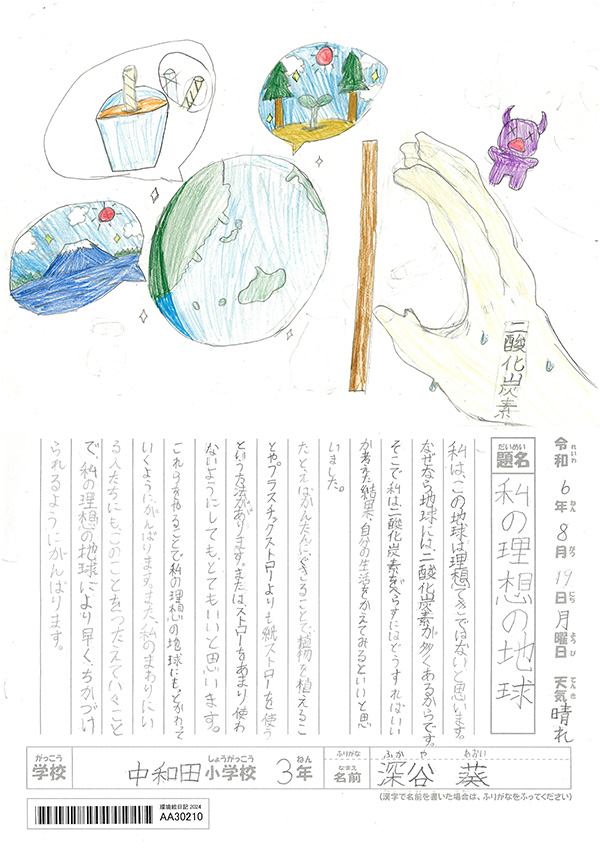 二酸化炭素
令和6年8月19日月曜日 天気 晴れ
れいわ ねん がつ にち ようび てんき
だいめい
題名
私の理想の地球
私は、この地球は理想てきではないと思います。
なぜなら地球には、二酸化炭素が多くあるからです。
そこで私は二酸化炭素をへらすにはどうすればいい
か考えた結果、自分の生活をかえてみるといいと思
いました。
たとえばかんたんにできることで植物を植えるこ
とやプラスチックストローよりも紙ストローを使う
という方法があります。またはストローをあまり使わ
ないようにしても、とてもいいと思います。
これらをやることで私の理想の地球にも、とかわって
いくようにがんばります。また、私のまわりにい
る人たちにも、このことをつたえていくこと
で、私の理想の地球により早く、ちかづけ
られるようにがんばります。
がっこう
学校
中和田
しょうがっこう
小学校
3
ねん
年
ふりがな
ふかや あおい
なまえ
名前
深谷 葵
(漢字で名前を書いた場合は、ふりがなをふってください)
環境絵日記 2024
AA30210